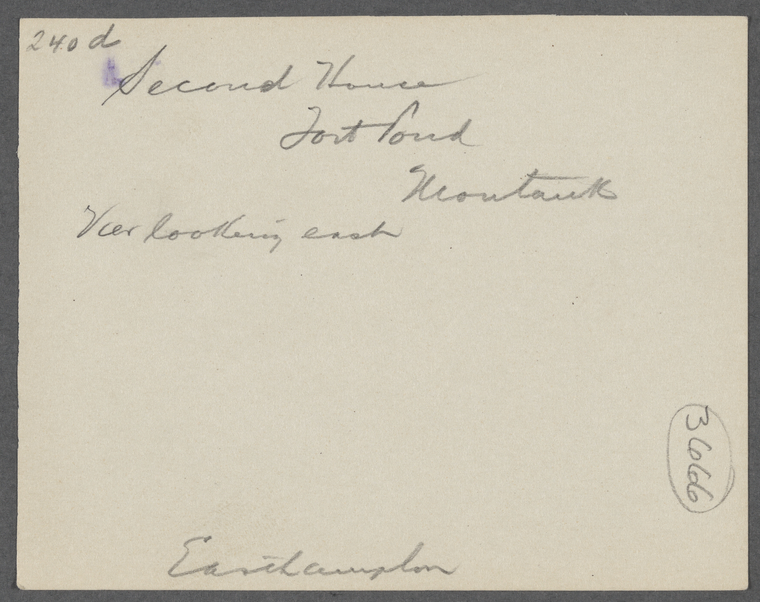 240d
Second House
Fort Pond
Montauk
View looking east
3666
Easthampton